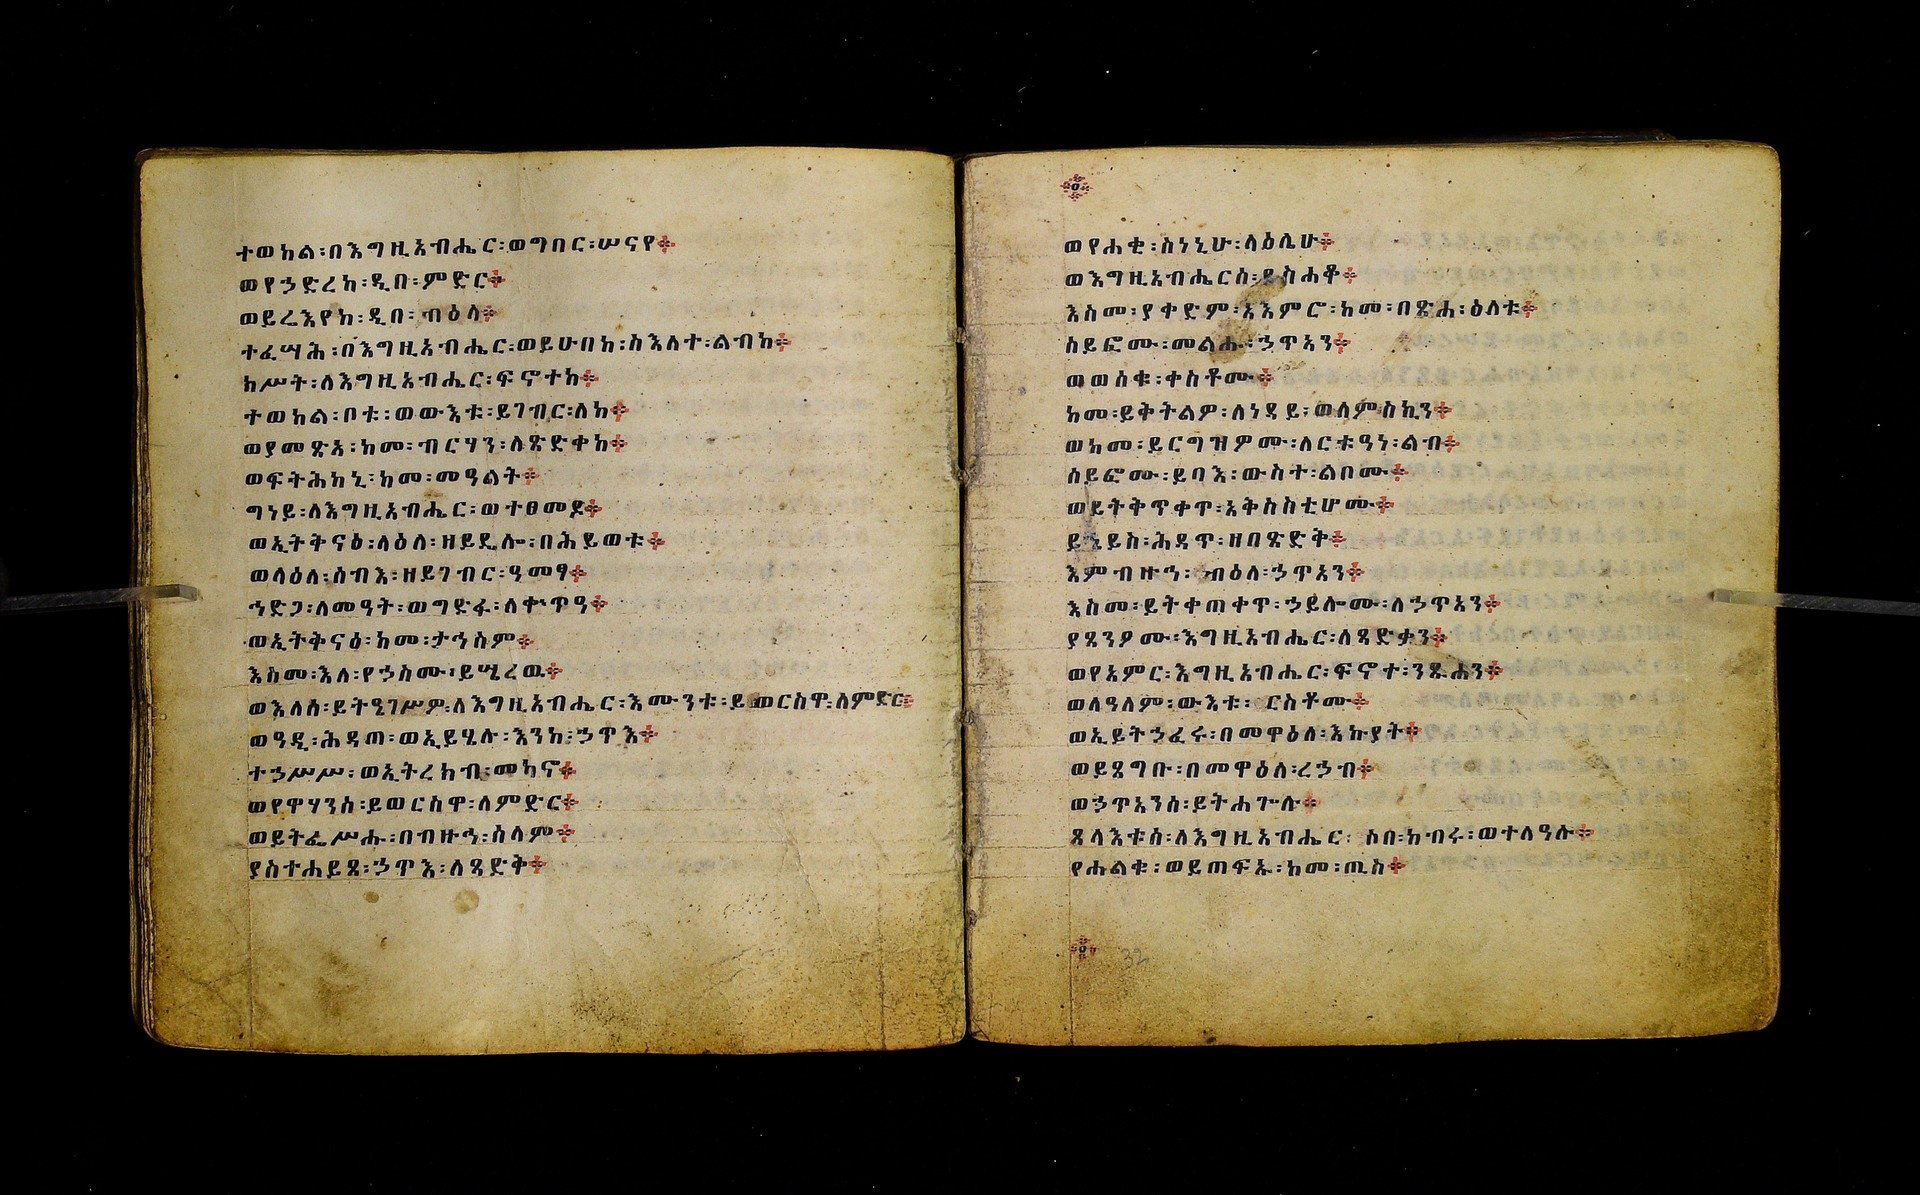 ተወከል፡በእግዚአብሔር፡ወግበር፡ሠናየ፨
ወየኃድረከ፡ዲበ፡ምድር፨
ወይሬእየከ፡ዲበ፡ብዕላ፨
ተፈሣሕ፡በእግዚአብሔር፡ወይሁበከ፡ስእለተ፡ልብከ፨
ክሥት፡ለእግዚአብሔር፡ፍኖተከ፨
ተወከል፡ቦቱ፡ወውእቱ፡ይገብር፡ለከ፨
ወያመጽአ፡ከመ፡ብርሃን፡ለጽድቀከ፨
ወፍትሕከኒ፡ከመ፡መዓልት፨
ግነይ፡ለእግዚአብሔር፡ወተፀመዶ፨
ወኢትቅናዕ፡ላዕለ፡ዘይዴሎ፡በሕይወቱ፨
ወላዕለ፡ሰብእ፡ዘይገብር፡ዓመፃ፨
ኅድጋ፡ለመዓት፡ወግድፋ፡ለቍጥዓ፨
ወኢትቅናዕ፡ከመ፡ታኅስም፨
እስመ፡እለ፡የኃስሙ፡ይሤረዉ፨
ወእለሰ፡ይትዔገሥዎ፡ለእግዚአብሔር፡እሙንቱ፡ይወርስዋ፡ለምድር፨
ወዓዲ፡ሕዳጠ፡ወኢይሄሉ፡እንከ፡ኃጥእ፨
ተኃሥሥ፡ወኢትረክብ፡መካኖ፨
ወየዋሃንሰ፡ይወርስዋ፡ለምድር፨
ወይትፌሥሑ፡በብዙኅ፡ሰላም፨
ያስተሐይጽ፡ኃጥእ፡ለጻድቅ፨
ወየሐቂ፡ስነኒሁ፡ላዕሌሁ፨
ወእግዚአብሔርሰ፡ይስሐቆ፨
እስመ፡ያቀድም፡አእምሮ፡ከመ፡በጽሐ፡ዕለቱ፨
ሰይፎሙ፡መልሑ፡ኃጥኣን፨
ወወሰቁ፡ቀስቶሙ፨
ከመ፡ይቅትልዎ፡ለነዳይ፡ወለምስኪን፨
ወከመ፡ይርግዝዎሙ፡ለርቱዓነ፡ልብ፨
ሰይፎሙ፡ይባእ፡ውስተ፡ልቦሙ፨
ወይትቅጥቀጥ፡አቅስስቲሆሙ፨
ይኄይስ፡ሕዳጥ፡ዘበጽድቅ፨
እምብዙኅ፡ብዕለ፡ኃጥኣን፨
እስመ፡ይትቀጠቀጥ፡ኃይሎሙ፡ለኃጥኣን፨
ያጸንዖሙ፡እግዚአብሔር፡ለጻድቃን፨
ወየአምር፡እግዚአብሔር፡ፍኖተ፡ንጹሐን፨
ወለዓለም፡ውእቱ፡ርስቶሙ፨
ወኢይትኃፈሩ፡በመዋዕለ፡እኩያት፨
ወይጸግቡ፡በመዋዕለ፡ረኃብ፨
ወኃጥኣንሰ፡ይትሐጐሉ፨
ጸላእቱሰ፡ለእግዚአብሔር፡ሶበ፡ከብሩ፡ወተለዓሉ፨
የሐልቁ፡ወይጠፍኡ፡ከመ፡ጢስ፨
32